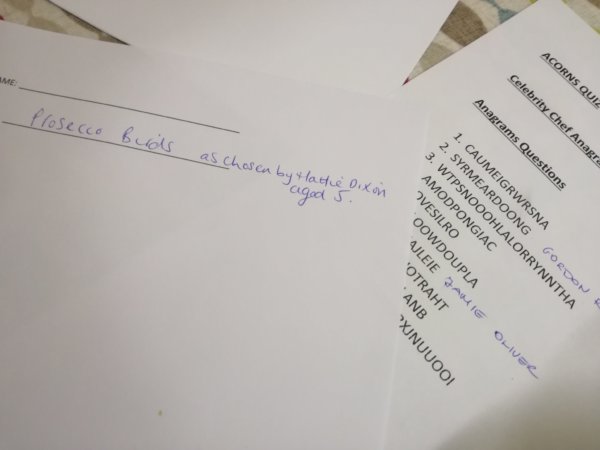 AME:
Prosecco Birds as chosen by Hattie Dixon
aged 5.
ACORNS QUIZ
Celebrity Chef Anagr
Anagrams Questions
1. CAUMEIGRWRSNA
2. SYRMEARDOONG GORDON R
3. WTPSNOOOHLALORRYNNTHA
AMODPONGIAC
OVESILRO
OOWDOUPLA
AILEIE JAMIE OLIVER
OTRAHT
ANB
XJNUUOOI